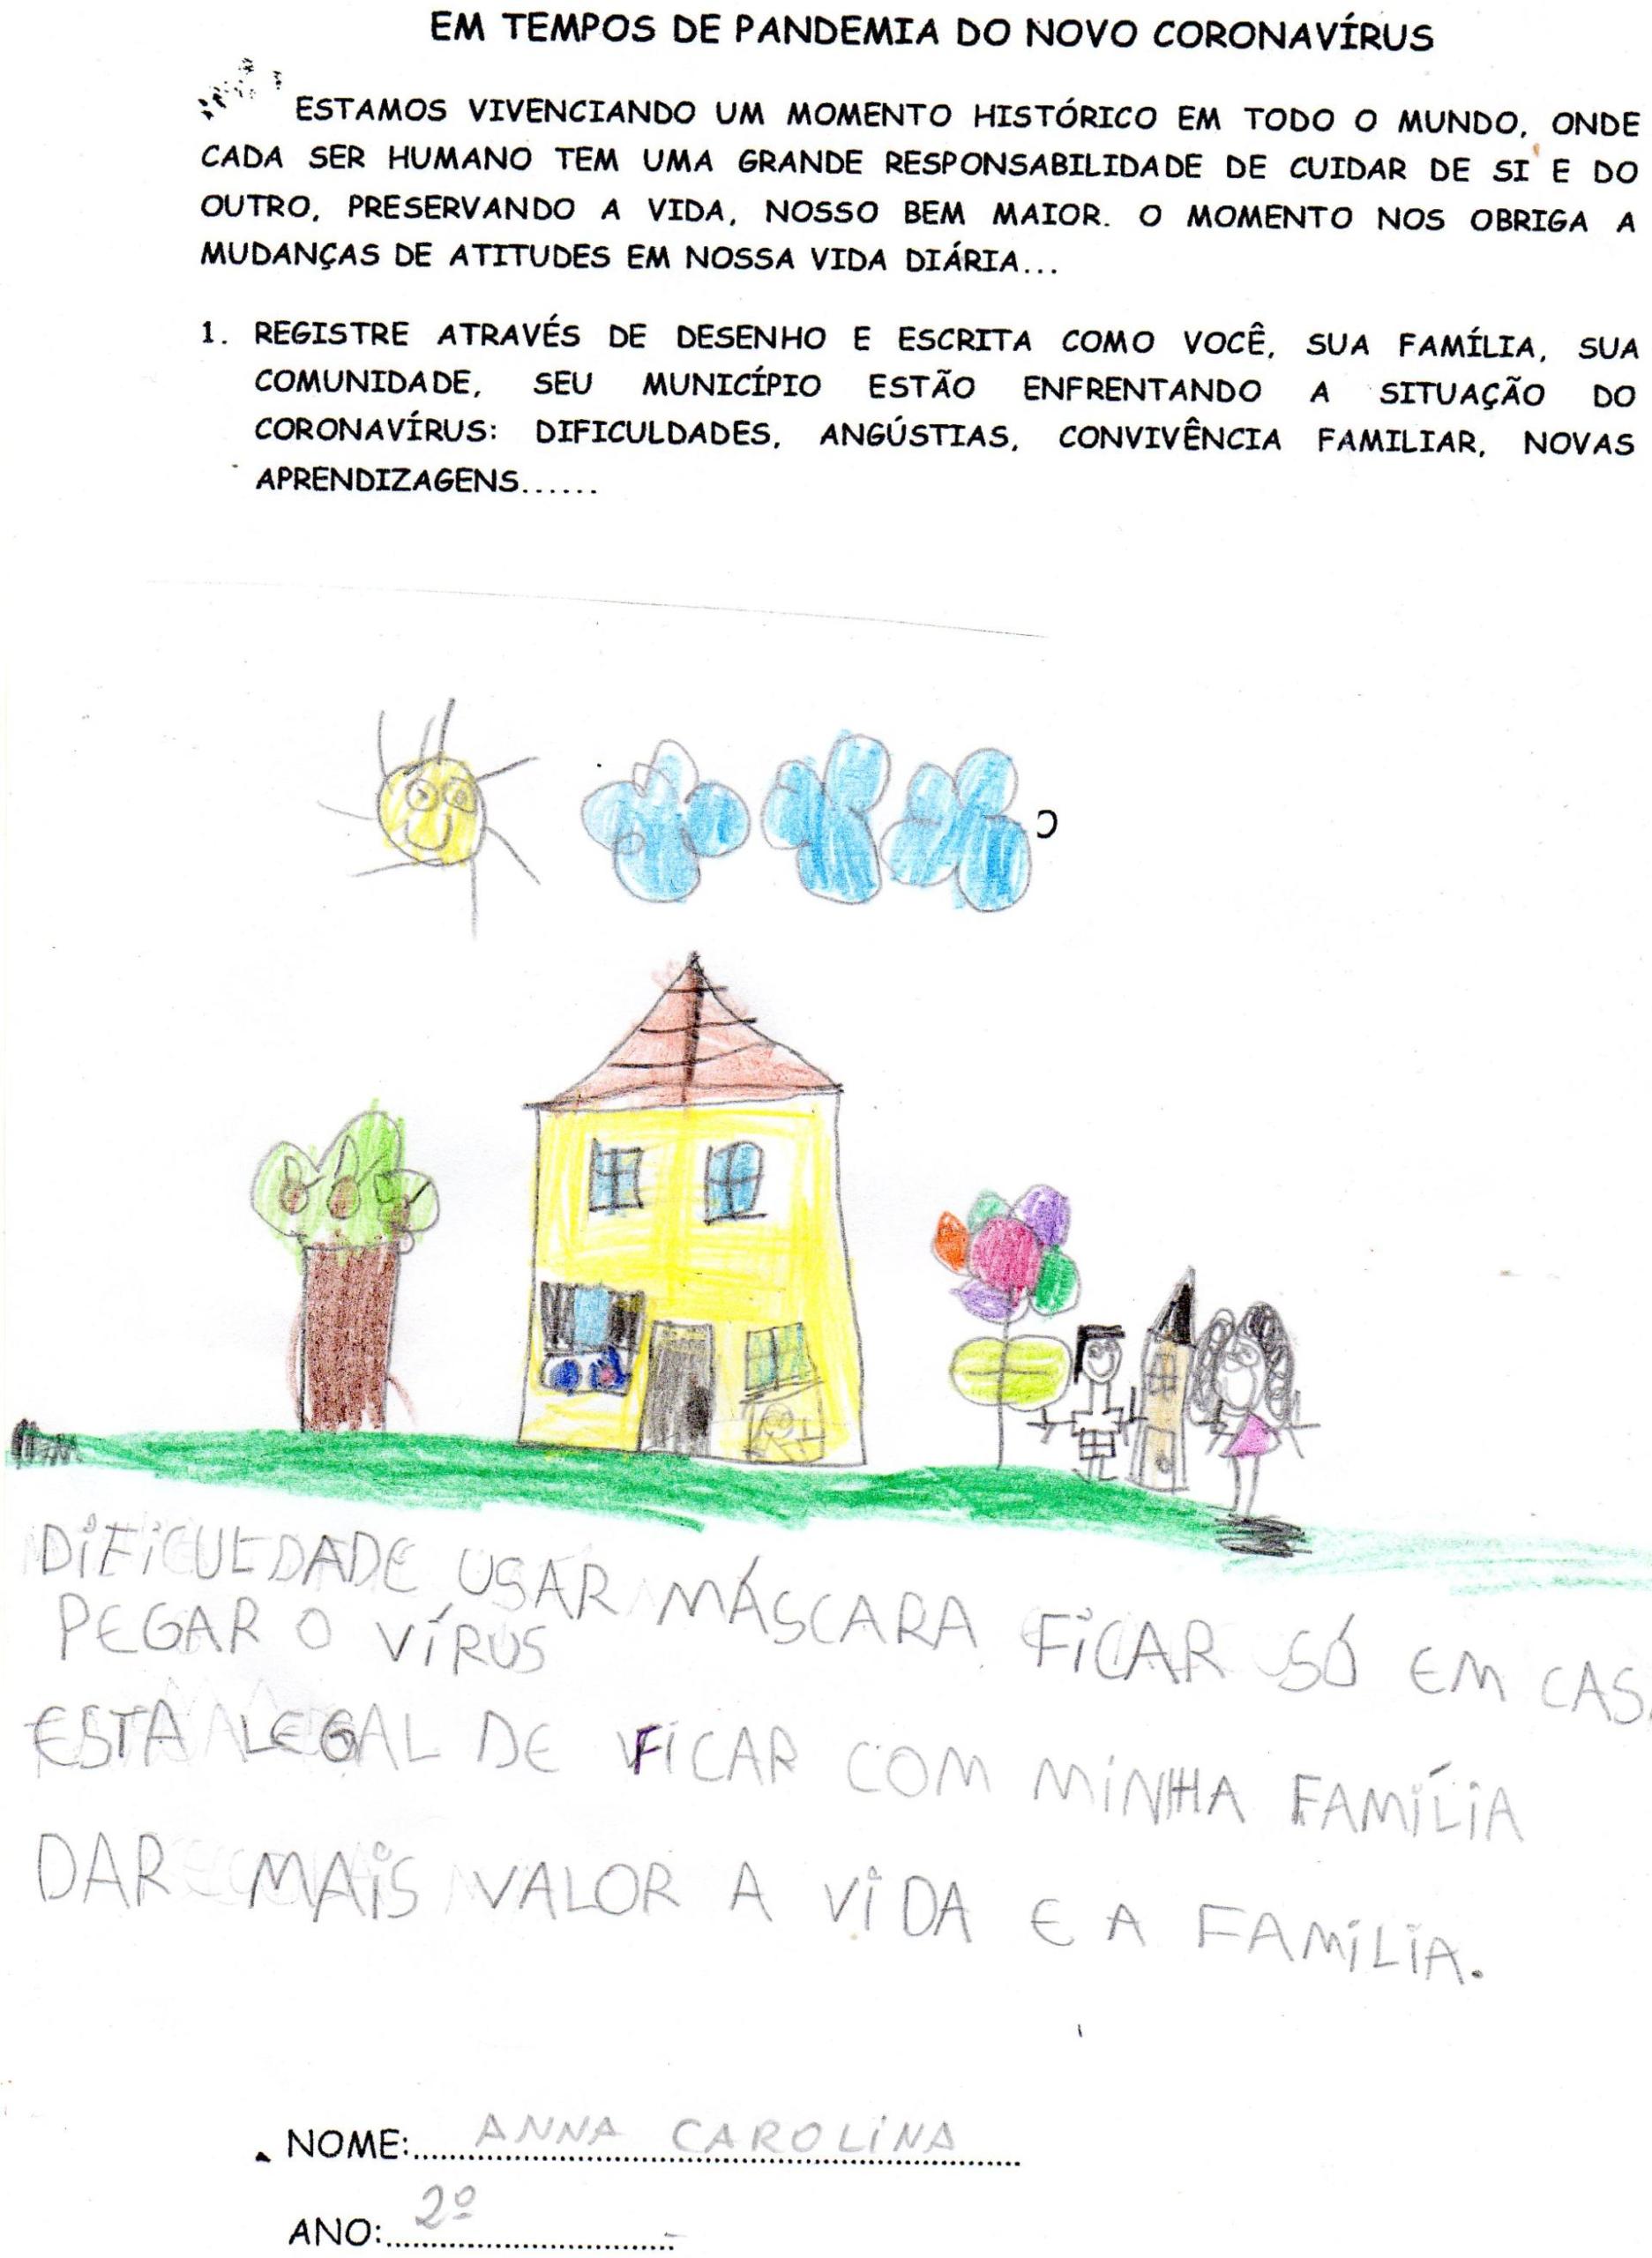 EM TEMPOS DE PANDEMIA DO NOVO CORONAVÍRUS
ESTAMOS VIVENCIANDO UM MOMENTO HISTÓRICO EM TODO O MUNDO, ONDE
CADA SER HUMANO TEM UMA GRANDE RESPONSABILIDADE DE CUIDAR DE SI E DO
OUTRO, PRESERVANDO A VIDA, NOSSO BEM MAIOR. O MOMENTO NOS OBRIGA A
MUDANÇAS DE ATITUDES EM NOSSA VIDA DIÁRIA...
1. REGISTRE ATRAVÉS DE DESENHO E ESCRITA COMO VOCÊ, SUA FAMÍLIA, SUA
COMUNIDADE, SEU MUNICÍPIO ESTÃO ENFRENTANDO A SITUAÇÃO DO
CORONAVÍRUS: DIFICULDADES, ANGÚSTIAS, CONVIVÊNCIA FAMILIAR, NOVAS
APRENDIZAGENS......
DIFICULDADE USAR MÁSCARA FICAR SÓ EM CAS
PEGAR O VÍRUS
ESTA LEGAL DE FICAR COM MINHA FAMÍLIA
DAR MAIS VALOR A VIDA E A FAMILIA.
NOME: ANNA CAROLINA
ANO: 2º